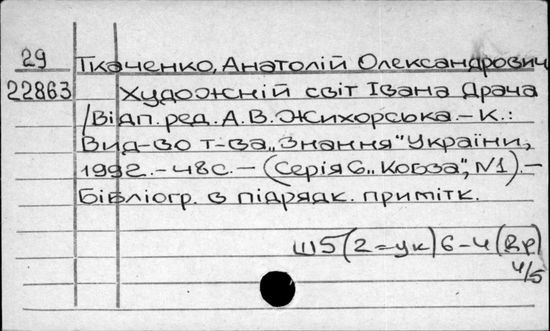 29 Ткаченко, Анатолій Олександрович
22863 Художній світ Івана Драча
/Відп. ред. А.В. Жихорська.-К.:
Вид-во т-ва „Знання" України,
1992.-48с.- (Серія 6 „Кобза", N1).-
Бібліогр. в підрядк. примітк.
Ш5(2=ук)6-4(Др)
4/5